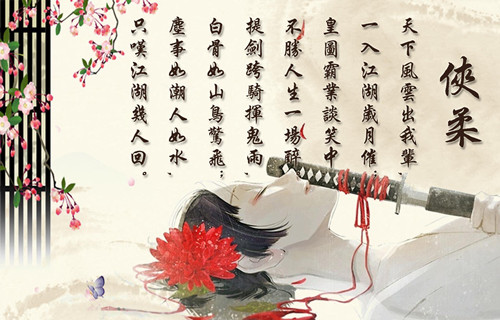 俠柔
天下風雲出我輩，
一入江湖歲月催；
皇圖霸業談笑中，
不勝人生一場醉。
提劍跨騎揮鬼雨，
白骨如山鳥驚飛；
塵事如潮人如水，
只嘆江湖幾人回。